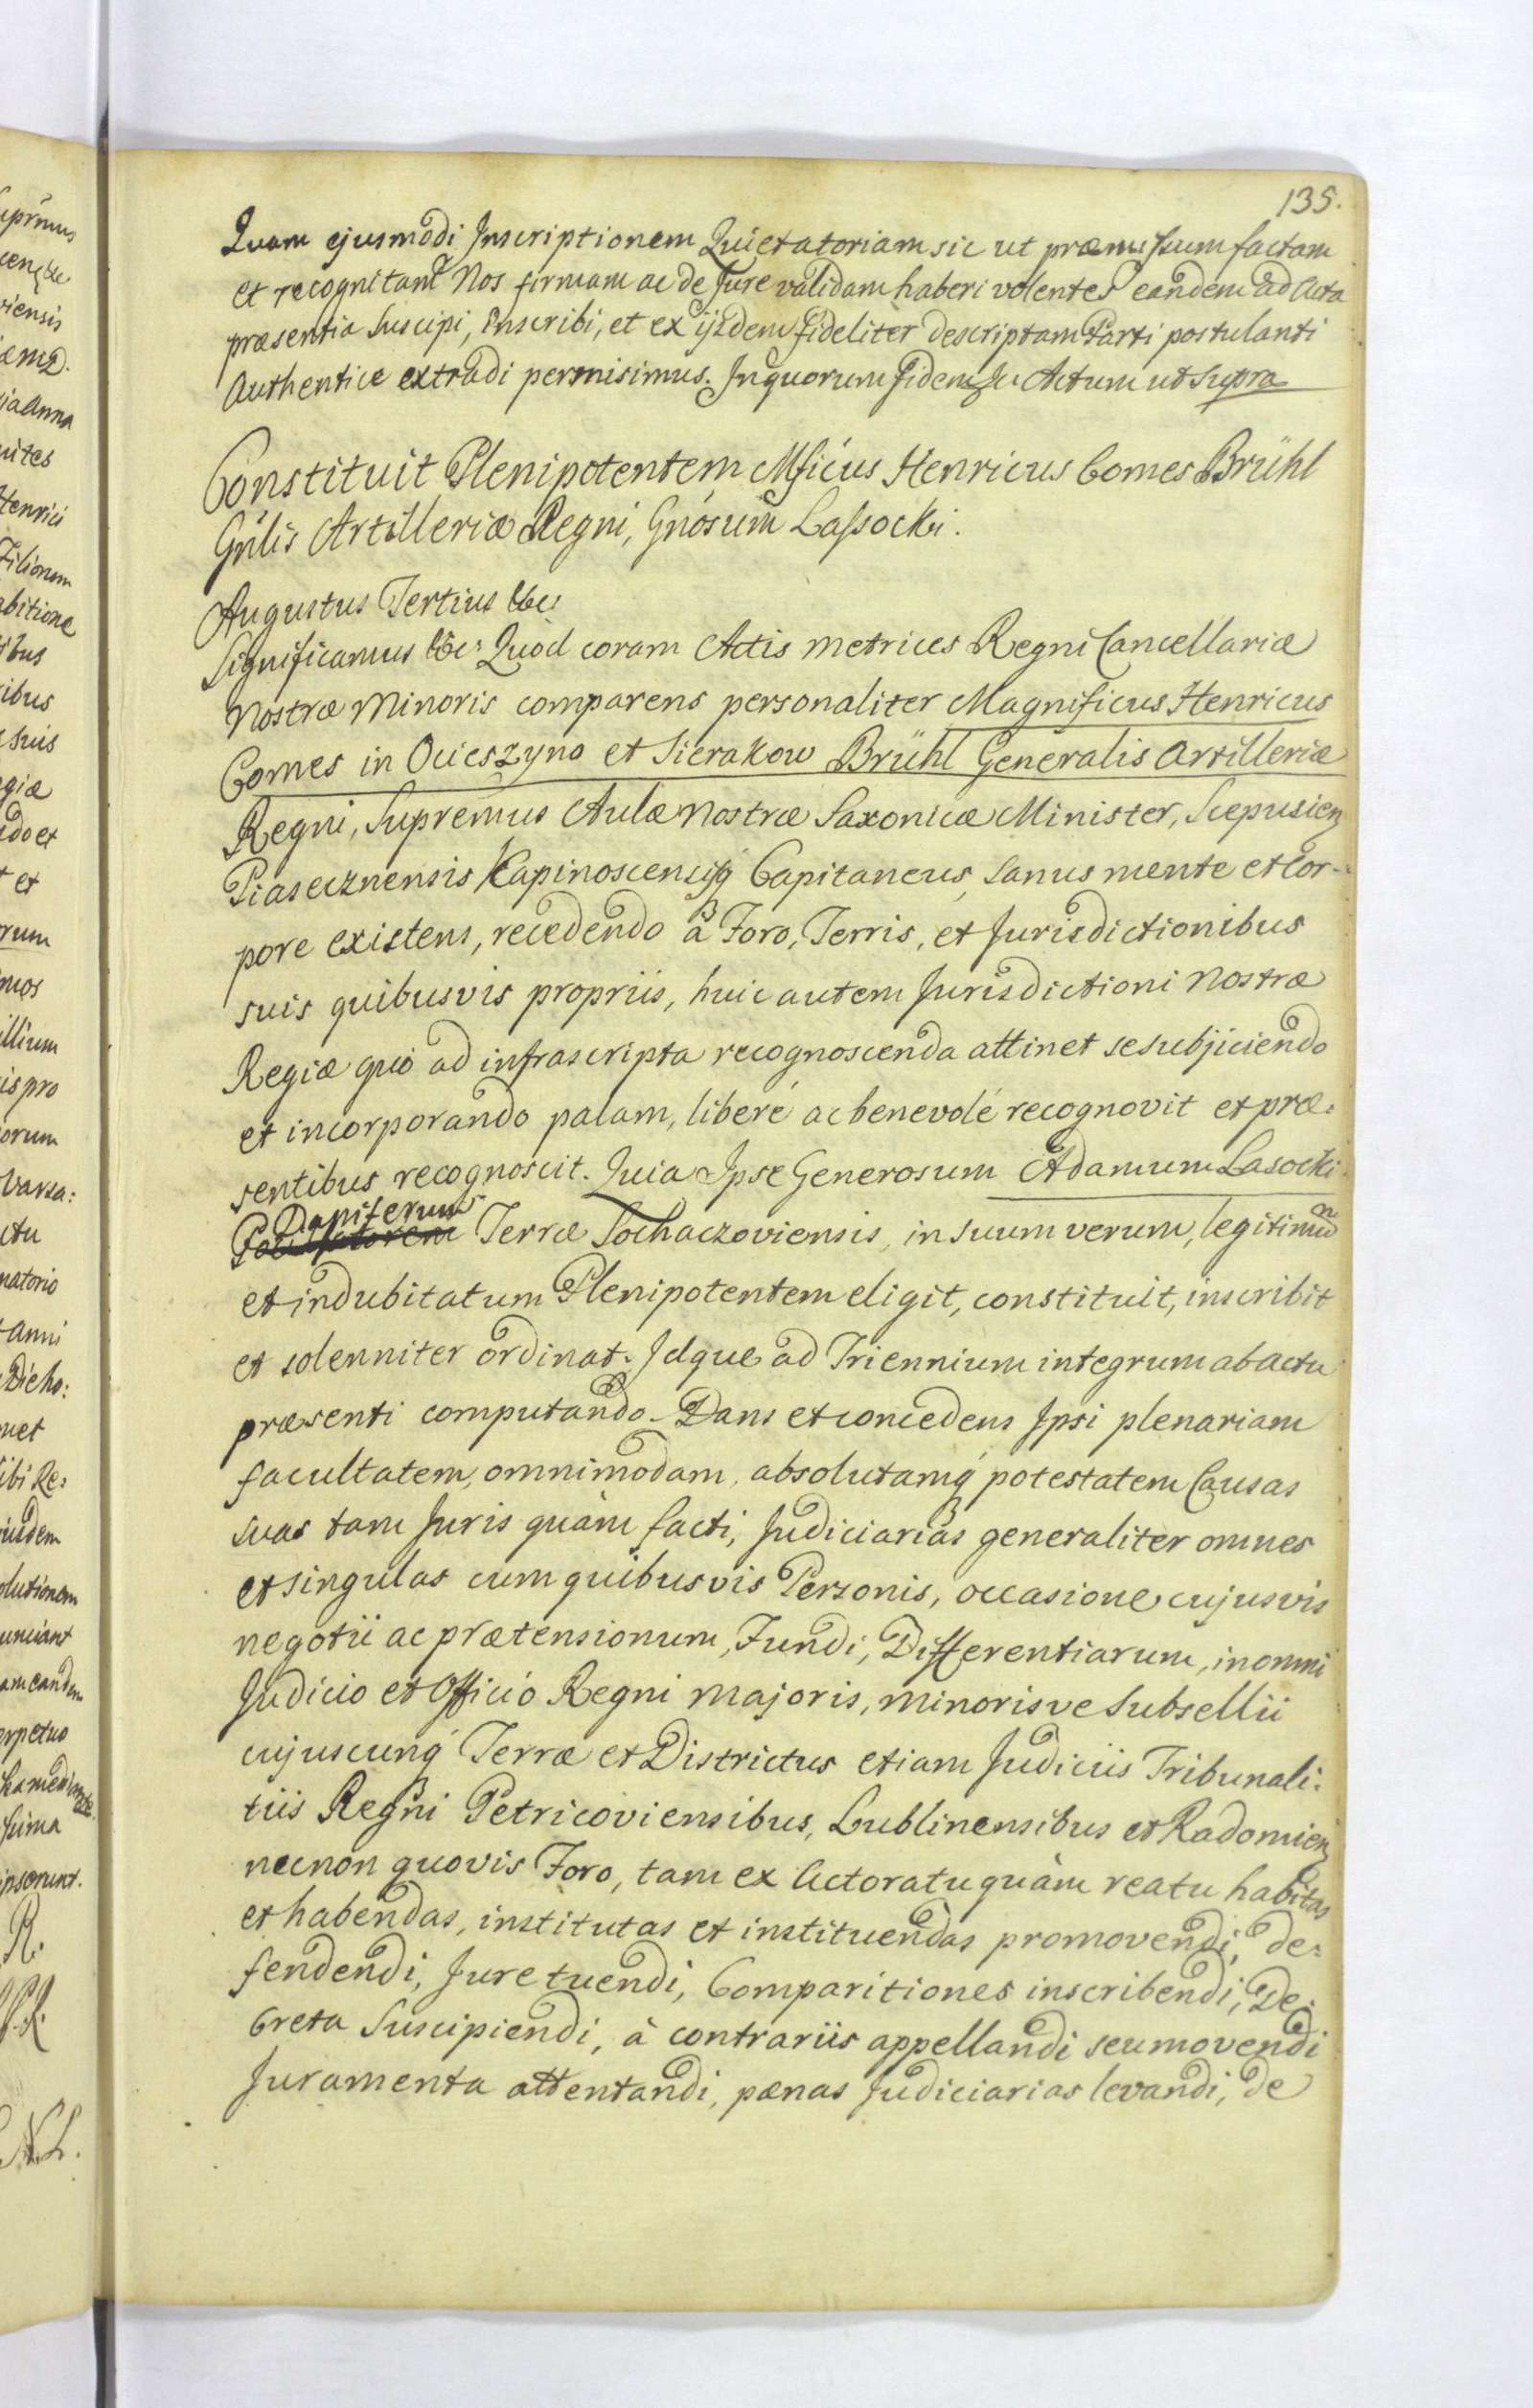 135.
Quam ejusmodi Inscriptionem Quietatoriam sic ut præmissum factam
et recognitam Nos firmam ac de Jure validam haberi volentes eandem ad Acta
præsentia Suscipi, Inscribi, et ex ijsdem fideliter descriptam Parti postulanti
Authentice extradi permisimus. In quorum fidem &c Actum ut Supra
Constituit Plenipotentem Mficus Henricus Comes Brühl
Gnlis Artilleriæ Regni, Gnosum Lassocki.
Augustus Tertius &c:
Significamus &c: Quod coram Actis Metrices Regni Cancellariæ
Nostræ Minoris comparens personaliter Magnificus Henricus
Comes in Ocieszyno et Sierakow Brühl Generalis Artilleriæ
Regni, Supremus Aulæ Nostræ Saxonicæ Minister, Scepusien
Piasecznensis Capinoscensisq Capitaneus, sanus mente et Cor-
pore existens, recedendo à Foro, Terris, et Jurisdictionibus
suis quibusvis propriis, huic autem Jurisdictioni Nostræ
Regiæ quo ad infrascripta recognoscenda attinet se subjiciendo
et incorporando palam, liberé ac benevolé recognovit et præ:
sentibus recognoscit. Quia Ipse Generosum Adamum Lasocki
Dapiferum
Terræ Sochaczoviensis, in suum verum, legitimum
et indubitatum Plenipotentem eligit, constituit, inscribit
et solenniter ordinat. Idque ad Triennium integrum ab actu
præsenti computando. Dans et concedens Ipsi plenariam
facultatem, omnimodam, absolutamq potestatem Causas
suas tam Juris quàm facti, Judiciarias generaliter omnes
et singulas cum quibusvis Personis, occasione cujusvis
negotii ac prætensionum, Fundi, Differentiarum, in omni
Judicio et Officio Regni majoris, minorisve Subsellii
cujuscunq Terræ et Districtus etiam Judiciis Tribunali:
tiis Regni Petricoviensibus, Lublinensibus et Radomien
necnon quovis Foro, tam ex Actoratu quàm reatu habitas
et habendas, institutas et instituendas promovendi, de:
fendendi, Jure tuendi, Comparitiones inscribendi, De:
creta Suscipiendi, à contrariis appellandi seu movendi
Juramenta attentandi, pænas Judiciarias levandi, de